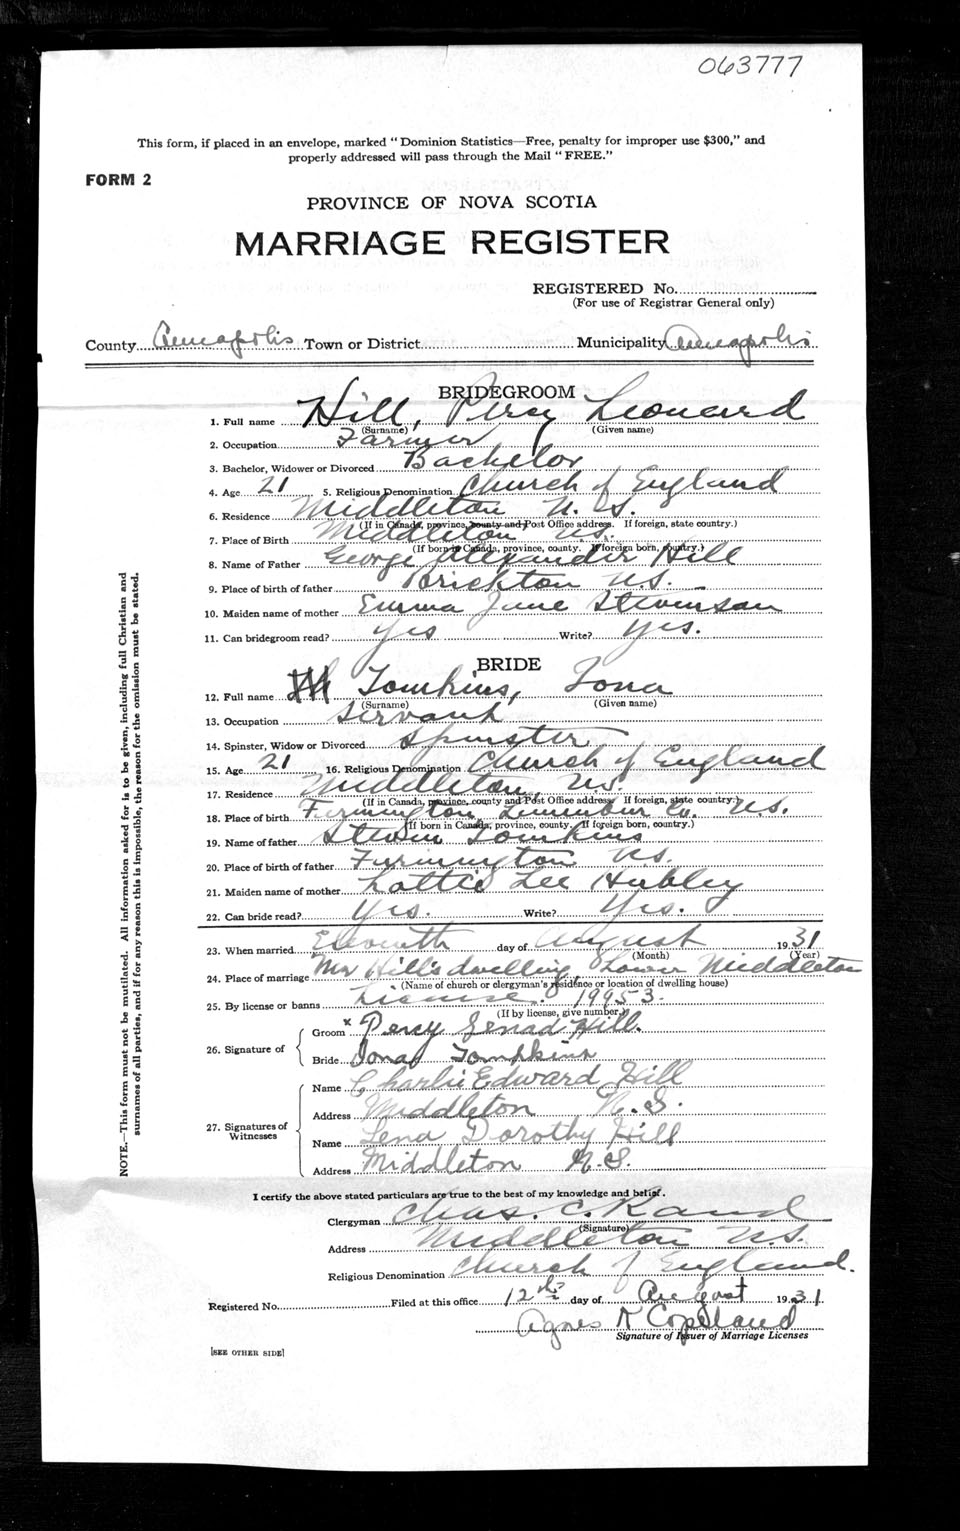 063777
This form, if placed in an envelope, marked "Dominion Statistics—Free, penalty for improper use $300," and
properly addressed will pass through the Mail "FREE."
FORM 2
PROVINCE OF NOVA SCOTIA
MARRIAGE REGISTER
REGISTERED No.
(For use of Registrar General only)
County Annapolis Town or District Municipality Annapolis
BRIDEGROOM
1. Full name Hill, Percy Leonard
(Surname) (Given name)
2. Occupation Farmer
3. Bachelor, Widower or Divorced Bachelor
4. Age 21 5. Religious Denomination Church of England
6. Residence Middleton N. S.
(If in Canada, province, county and Post Office address. If foreign, state country.)
7. Place of Birth Middleton N.S.
(If born in Canada, province, county. If foreign born, country.)
8. Name of Father George Alexander Hill
9. Place of birth of father Brickton N.S.
10. Maiden name of mother Emma Jane Stevenson
11. Can bridegroom read? Yes Write? Yes.
BRIDE
12. Full name Tomkins, Iona
(Surname) (Given name)
13. Occupation Servant
14. Spinster, Widow or Divorced Spinster
15. Age 21 16. Religious Denomination Church of England
17. Residence Middleton, N.S.
(If in Canada, province, county and Post Office address. If foreign, state country.)
18. Place of birth Farmington Lunenbur Co. N.S.
(If born in Canada, province, county. If foreign born, country.)
19. Name of father Tomkins
20. Place of birth of father Farmington N.S.
21. Maiden name of mother Lottie Lee Hubley
22. Can bride read? Yes. Write? Yes.
23. When married Eleventh day of August 1931
(Month) (Year)
24. Place of marriage Mr Hill's dwelling, Lower Middleton
(Name of church or clergyman's residence or location of dwelling house)
25. By license or banns License. 19953.
(If by license, give number.)
26. Signature of
Groom x Percy Lenad Hill.
Bride Iona Tompkins
27. Signatures of Witnesses
Name Charlie Edward Hill
Address Middleton N.S.
Name Lena Dorothy Hill
Address Middleton N.S.
I certify the above stated particulars are true to the best of my knowledge and belief.
Clergyman Chas. C. Rand
(Signature)
Address Middleton N.S.
Religious Denomination Church of England.
Registered No. Filed at this office 12th day of August 1931
Agnes R Copeland
Signature of Issuer of Marriage Licenses
[SEE OTHER SIDE]
NOTE.—This form must not be mutilated. All information asked for is to be given, including full Christian and
surnames of all parties, and if for any reason this is impossible, the reason for the omission must be stated.